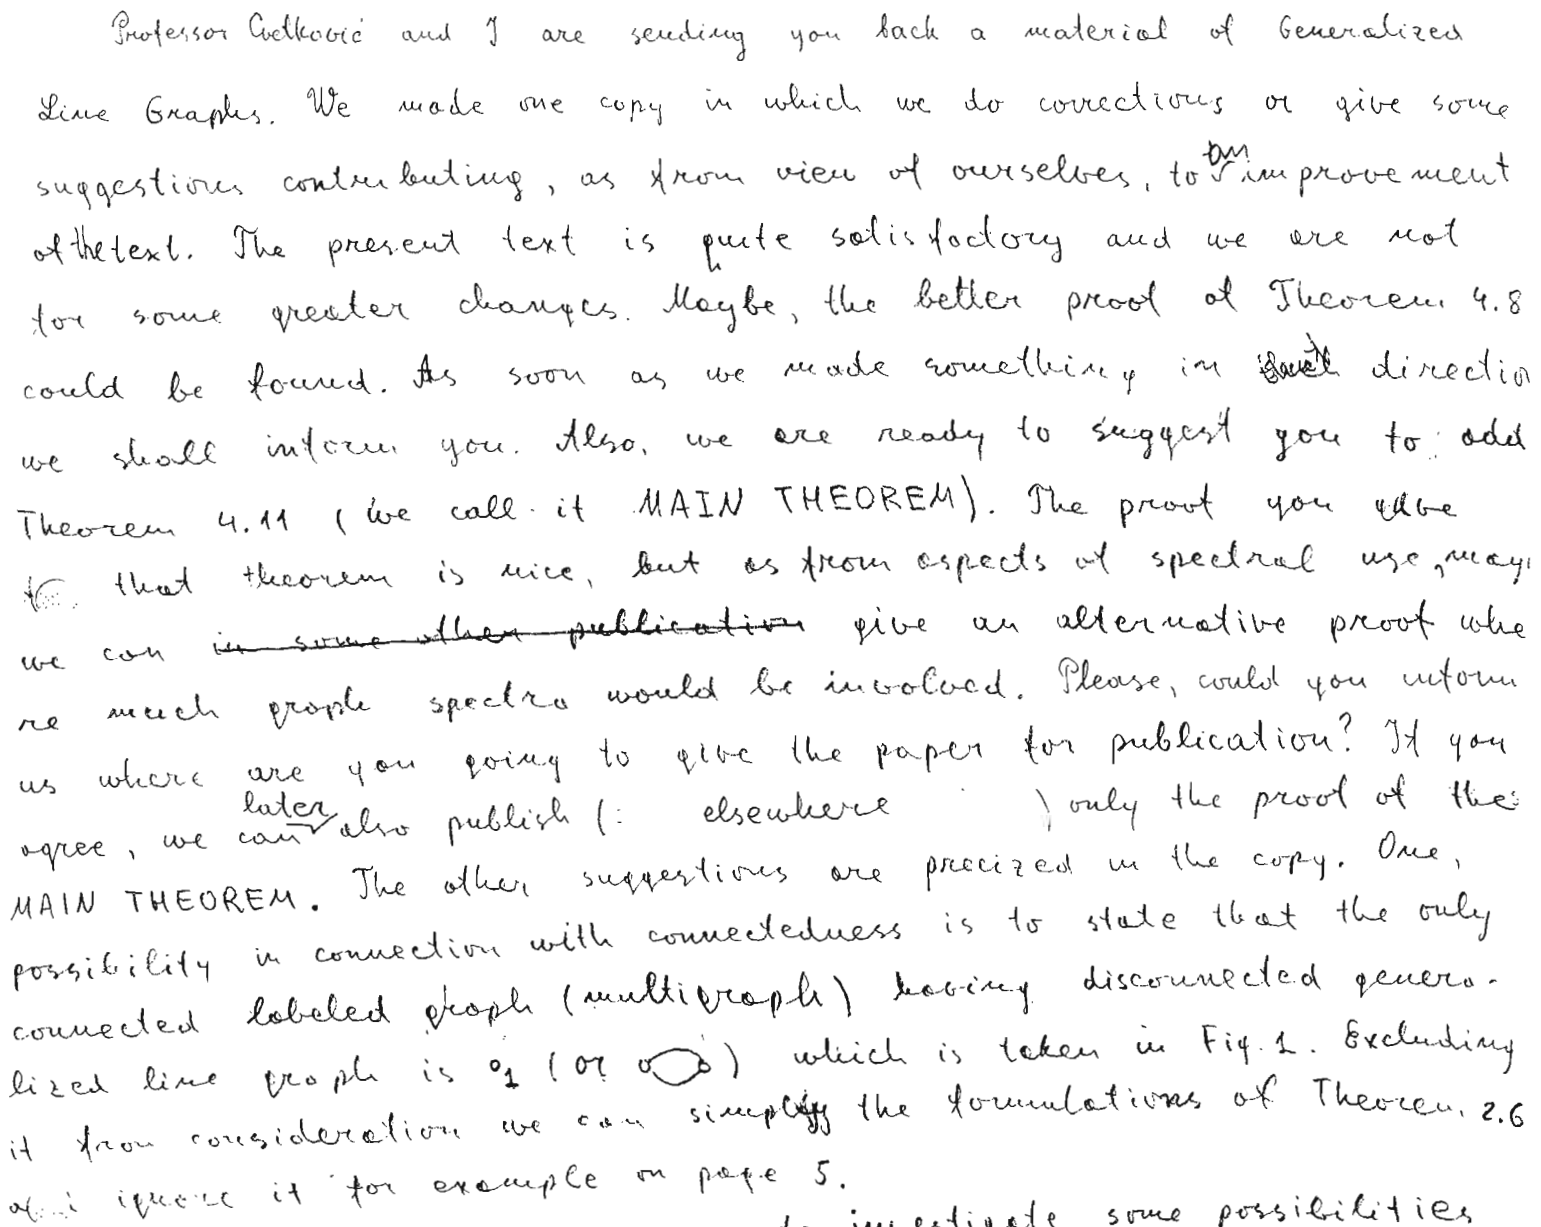 Professor Cvetković and I are sending you back a material of Generalized
Line Graphs. We made one copy in which we do corrections or give some
suggestions contributing, as from view of ourselves, to an improvement
of the text. The present text is quite satisfactory and we are not
for some greater changes. Maybe, the better proof of Theorem 4.8
could be found. As soon as we made something in direction
we shall inform you. Also, we are ready to suggest you to add
Theorem 4.11 (we call it MAIN THEOREM). The proof you gave
that theorem is nice, but as from aspects of spectral use, may
we can in some other publication give an alternative proof whe
re much graph spectra would be involved. Please, could you inform
us where are you going to give the paper for publication? If you
agree, we can later also publish (: elsewhere ) only the proof of the
MAIN THEOREM. The other suggestions are precized in the copy. One,
possibility in connection with connectedness is to state that the only
connected labeled graph (multigraph) having disconnected genera-
lized line graph is 1 (or ) which is taken in Fig. 1. Excluding
it from consideration we can simplify the formulations of Theorem 2.6
ignore it for example on page 5.
to investigate some possibilities